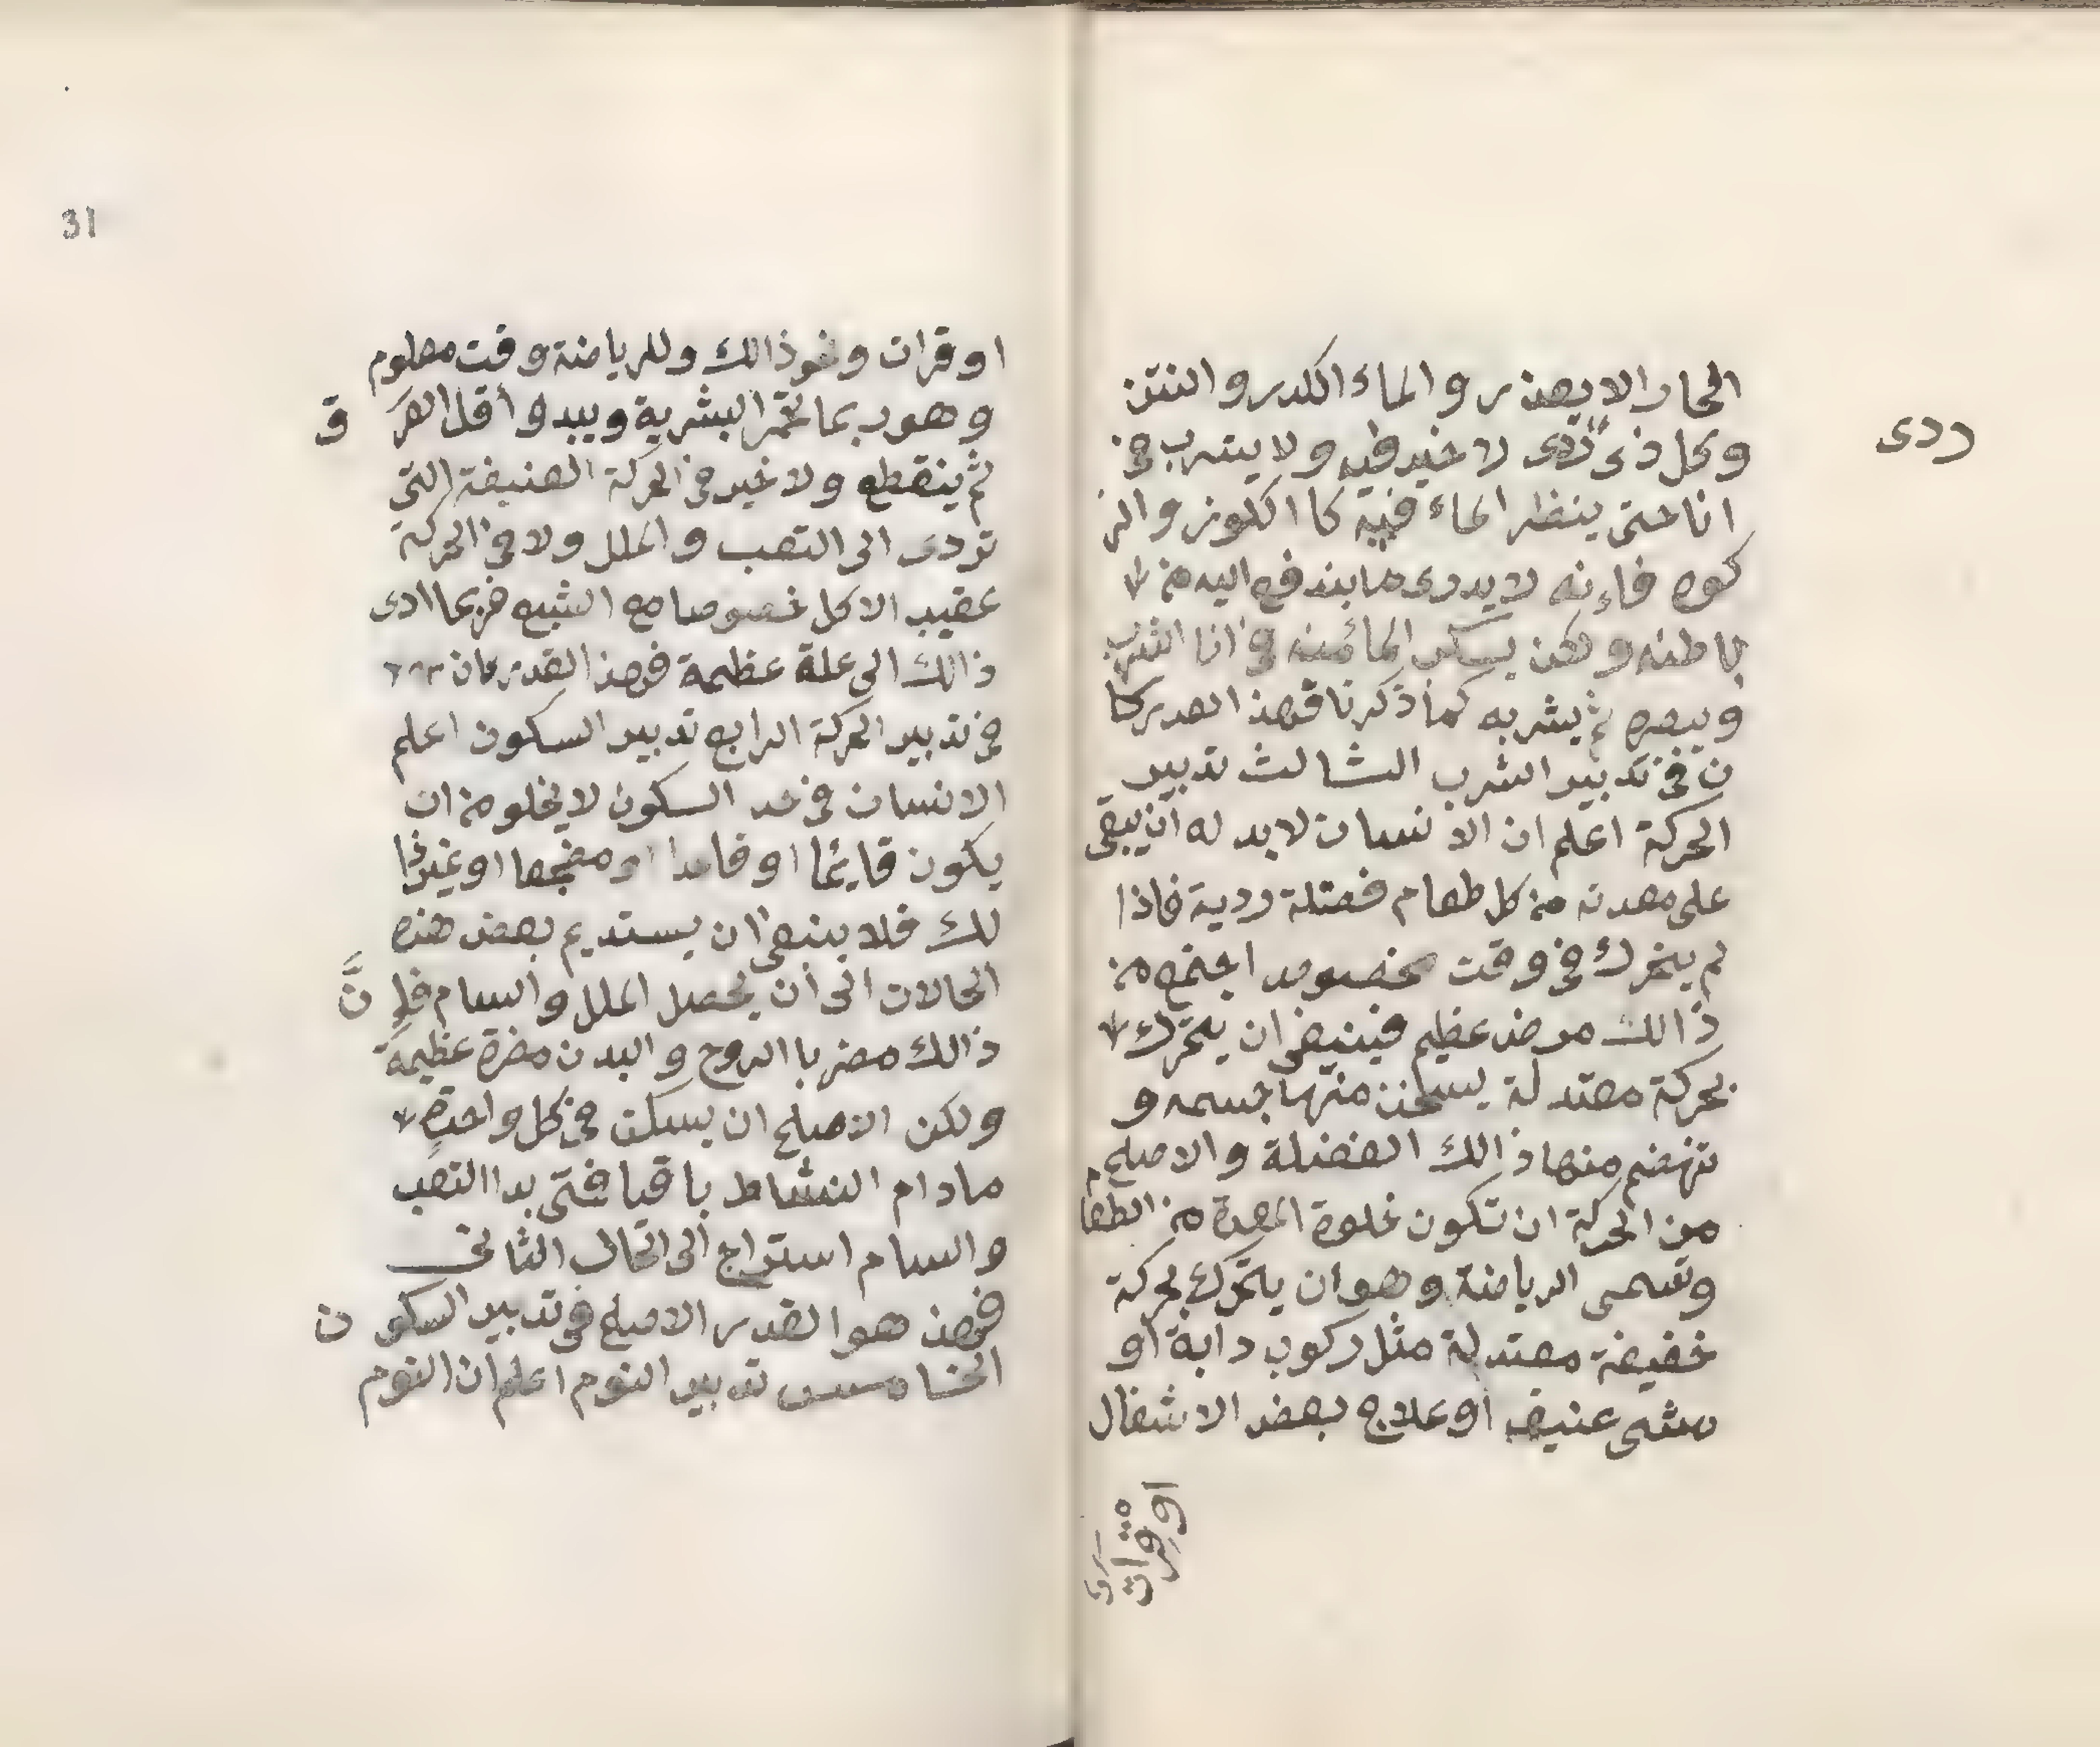 الحار الا بعذر والماء الكدر والنتن
وكل ذى ردى لا خير فيه ولا يشرب فى
ردى
انا حتى ينظر الماء فيه كا الكوز والر
كوه فاءنه لا يدرى ما يندفع اليه من
باطنه ولكن يسكب الماء منه فى انا الشرب
ويبصره ثم يشربه كما ذكرنا فهذا القدر كا
ن فى تدبير الشرب الثالث تدبير
الحركة اعلم ان الانسان لابد له ان يبقى
على معدته من كل طعام فضلة ردية فاذا
لم يتحرك فى وقت مخصوص اجتمع من
ذالك مرض عظيم فينبغى ان يتحرك
بحركة معتدلة يسخن منها جسمه و
تنهضم منها ذالك الفضلة والاصلح
من الحركة ان تكون خلوة المعدة من الطعام
وتسمى الرياضة وهو ان يتحرك بحركة
خفيفة معتدلة مثل ركوب دابة او
مشى عنيف او علاج بعض الاشغال
او قرات
او قرات ونحو ذالك وللرياضة وقت معلوم
وهو ربما تحمر البشرية ويبدو أقل العرق
ثم ينقطع ولا خير فى الحركة العنيفة التى
تودى الى التعب والملل ولا فى الحركة
عقيب الاكل خصوصا مع الشبع فربما ادى
ذالك الى علة عظيمة فهذا القدر كان
فى تدبير الحركة الرابع تدبير السكون اعلم
الانسان فى حد السكون لا يخلو من ان
يكون قايما او قاعدا او مضجعا او غير ذا
لك فلا ينبغى ان يستديم بعض هذه
الحالات الى أن يحصل الملل والسام فإنَّ
ذالك مضر با الروح والبدن مضرة عظيمة
ولكن الاصلح ان يسكن فى كل واحدة
مادام النشاط باقيا فمتى بدا التعب
والسام استراح الى الحال الثانى
فهذ هو القدر الاصلح فى تدبير السكون
الخامس تدبير النوم اعلم ان النوم
31